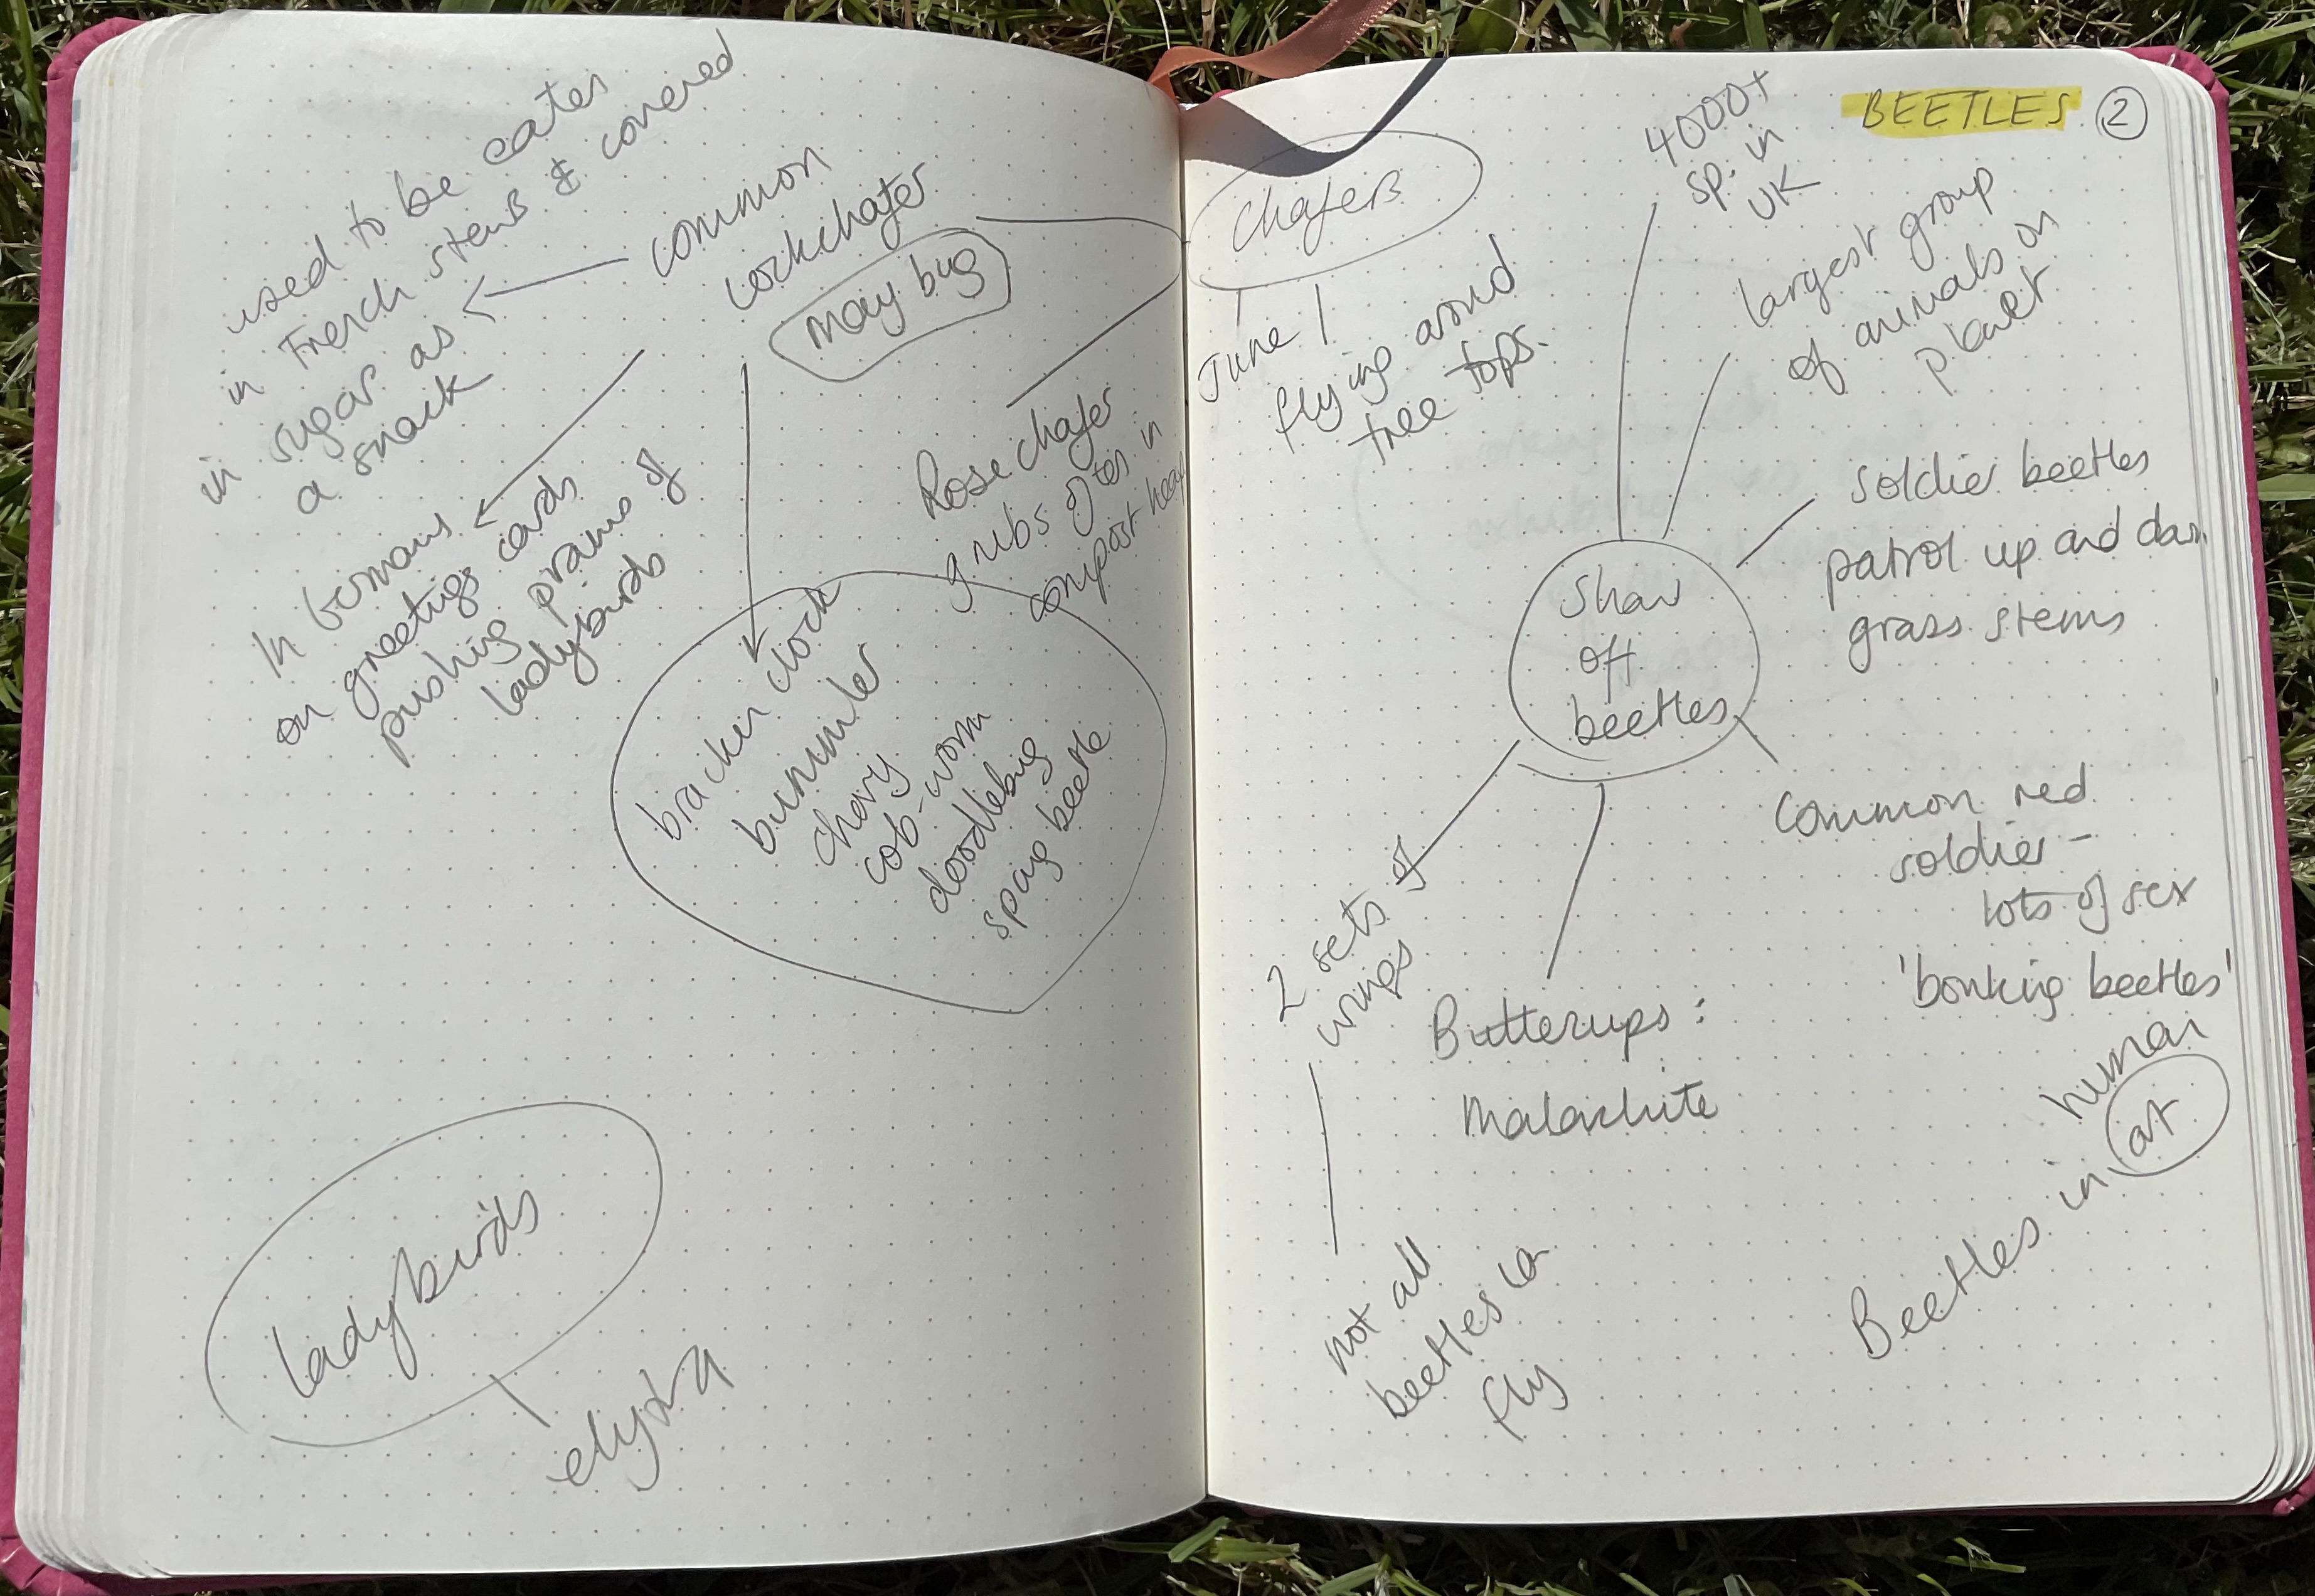 used to be eaten
in French stews & covered
in sugar as
a snack
common
cockchafer
may bug
In Germany
on greetings cards
pushing prams of
ladybirds
Rose chafer
grubs often in
compost heap
bracken clock
bummler
chovy
cob-worm
doodlebug
spang beetle
ladybirds
elytra
BEETLES 2
chafers
June
flying around
tree tops.
4000+
sp. in
UK
largest group
of animals on
planet
soldier beetles
patrol up and down
grass stems
Show
off
beetles
Common red
soldier -
lots of sex
'bonking beetles'
2 sets of
wings
not all
beetles can
fly
Buttercups:
Malachite
human
Beetles in art